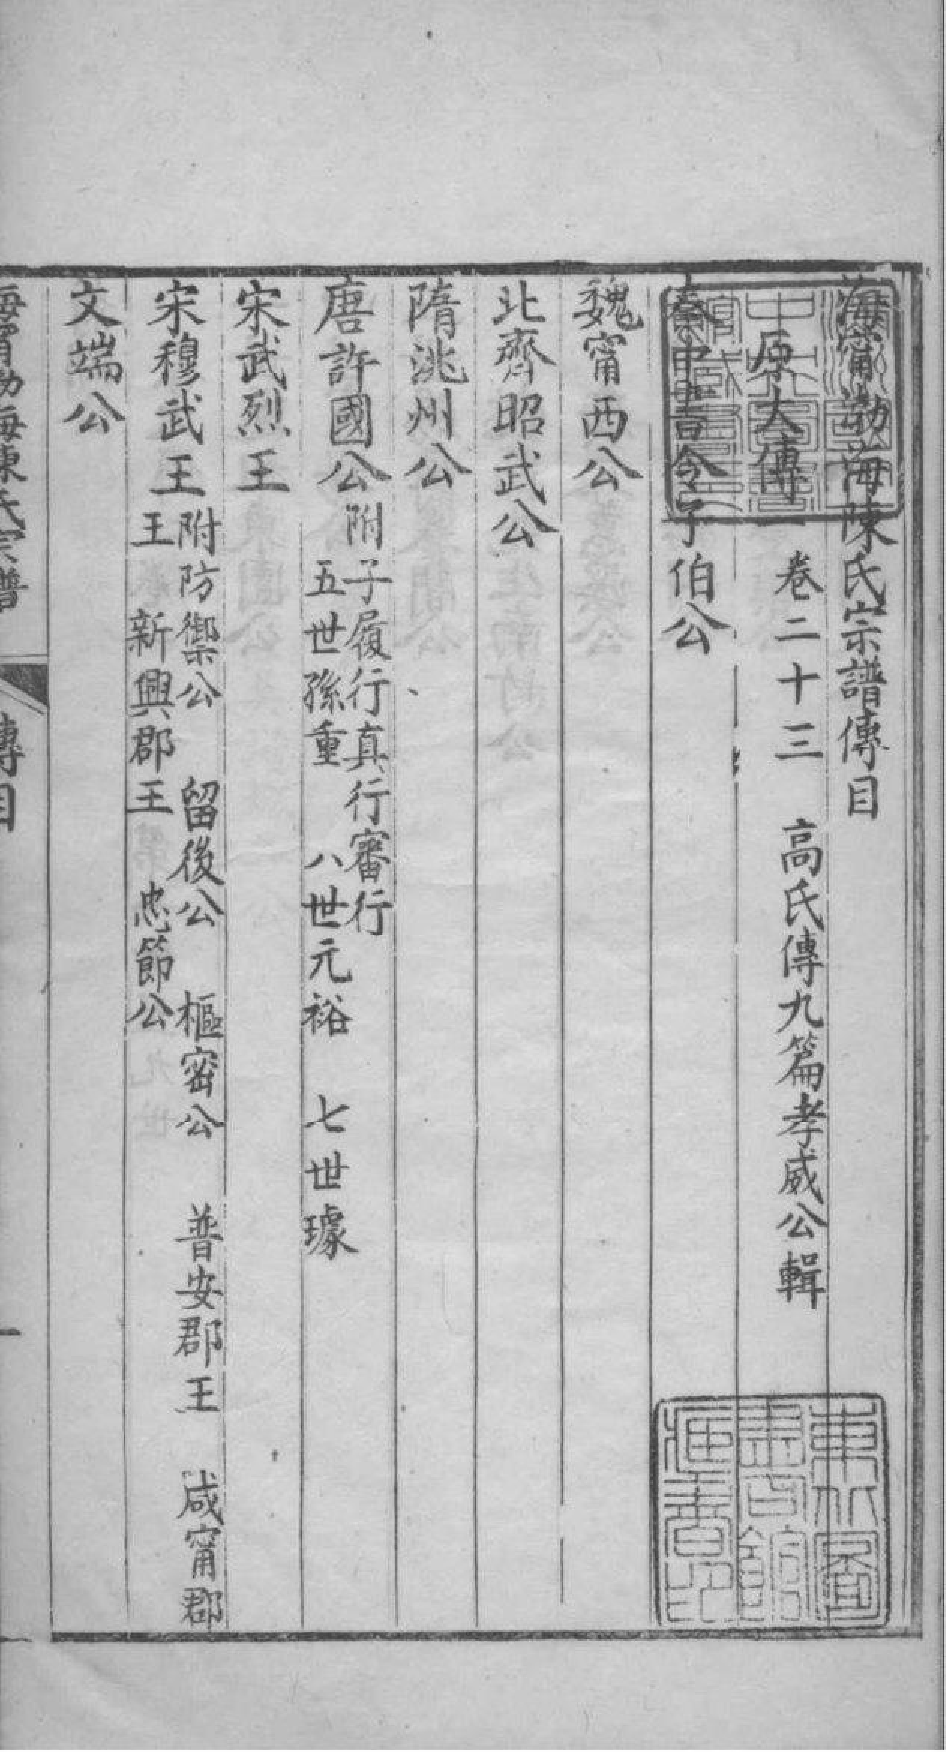 海甯渤海陳氏宗譜傳目
原大傳 卷二十三 高氏傳九篇孝威公輯
秦中書令子伯公
魏甯西公
北齊昭武公
隋洮州公
唐許國公附子履行真行審行
五世孫重 八世元裕 七世璩
宋武烈王
宋穆武王附防禦公 留後公 樞密公 普安郡王 咸甯郡
王 新興郡王 忠節公
文端公
海甯渤海陳氏宗譜 傳目 一